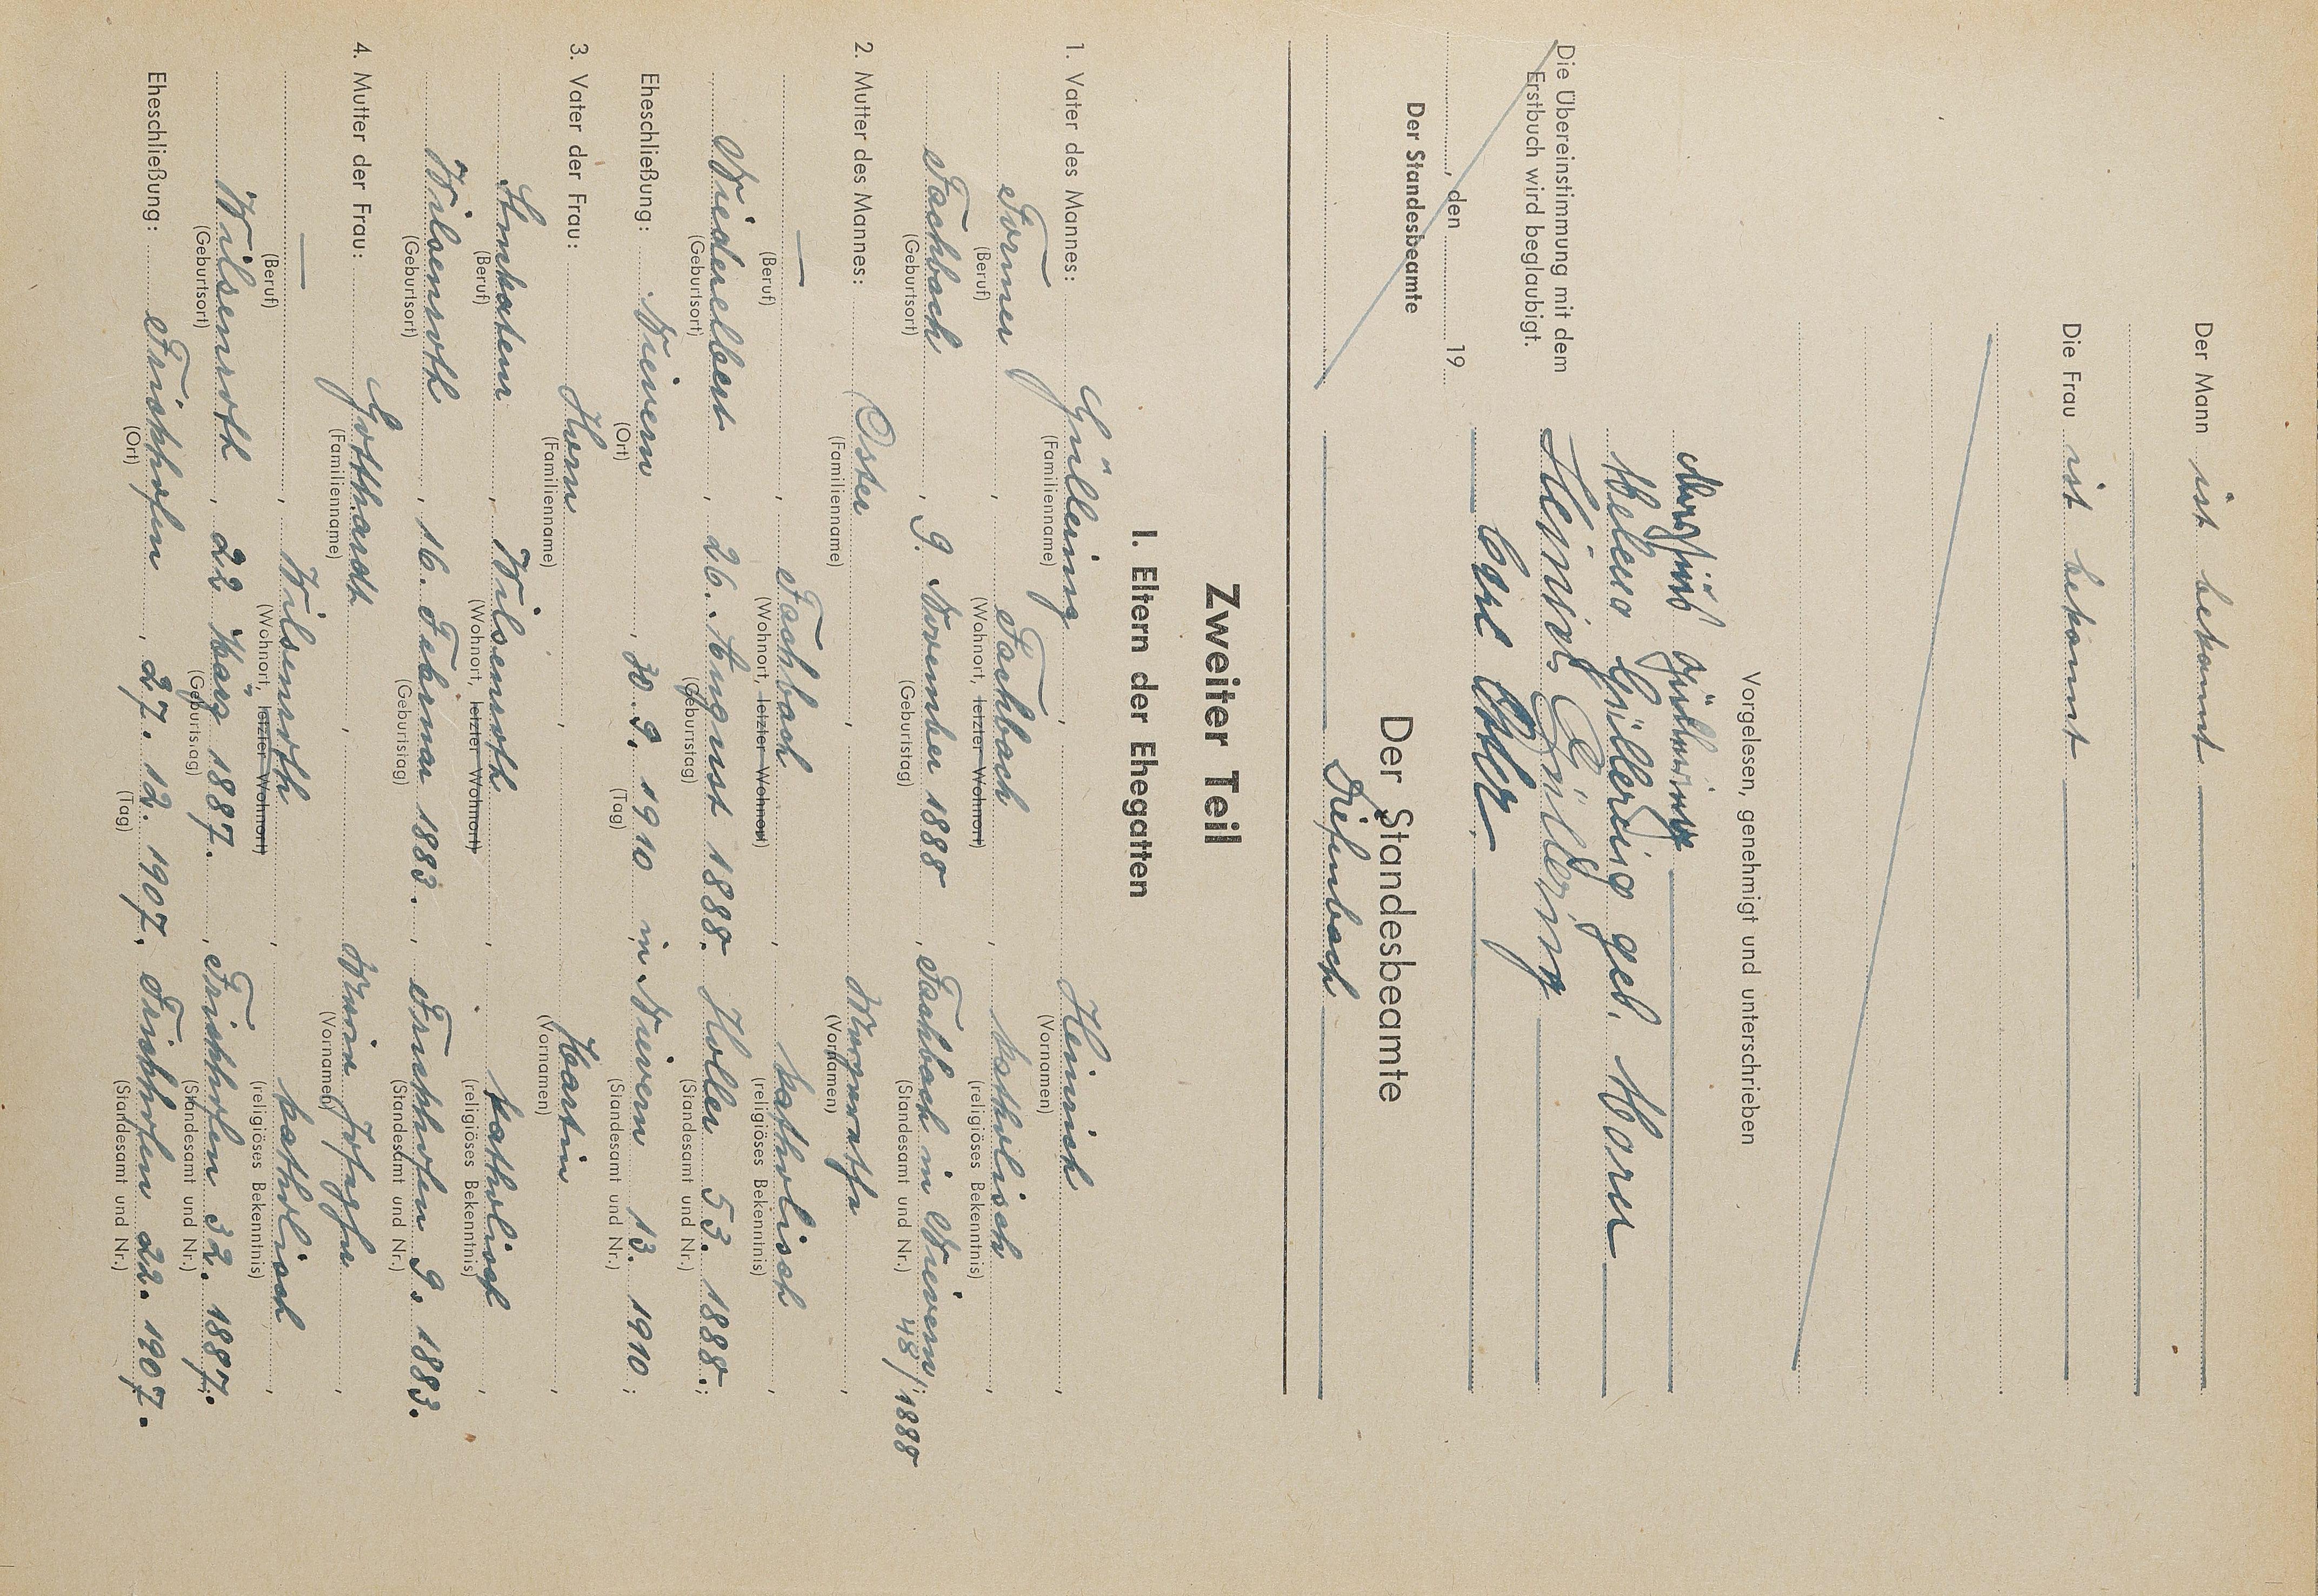 Der Mann ist bekannt
Die Frau ist bekannt
Vorgelesen, genehmigt und unterschrieben
Güllering
Helena Güllering geb. Horn
Heinrich Güllering
Die Übereinstimmung mit dem
Erstbuch wird beglaubigt.
, den 19
Der Standesbeamte
Der Standesbeamte
Diefenbach
Zweiter Teil
I. Eltern der Ehegatten
1. Vater des Mannes: Güllering Heinrich,
(Familienname) (Vornamen)
Former, Fachbach, katholisch,
(Beruf) (Wohnort, letzter Wohnort) (religiöses Bekenntnis)
Fachbach, 9. November 1888, Fachbach in Nievern 48/1888;
(Geburtsort) (Geburtstag) (Standesamt und Nr.)
2. Mutter des Mannes: Oster, Margaretha,
(Familienname) (Vornamen)
—, Fachbach, katholisch,
(Beruf) (Wohnort, letzter Wohnort) (religiöses Bekenntnis)
Niederelbert, 26. August 1888. Holler 53. 1888.;
(Geburtsort) (Geburtstag) (Standesamt und Nr.)
Eheschließung: Nievern, 30. 9. 1910 in Nievern 13. 1910;
(Ort) (Tag) (Standesamt und Nr.)
3. Vater der Frau: Horn, Martin,
(Familienname) (Vornamen)
Wilsenroth, katholisch,
(Beruf) (Wohnort, letzter Wohnort) (religiöses Bekenntnis)
Wilsenroth, 16. Februar 1883., Frickhofen 9. 1883.
(Geburtsort) (Geburtstag) (Standesamt und Nr.)
4. Mutter der Frau: Gotthardt, Maria Josepha,
(Familienname) (Vornamen)
—, Wilsenroth, katholisch,
(Beruf) (Wohnort, letzter Wohnort) (religiöses Bekenntnis)
Wilsenroth, 22 März 1887., Frickhofen 32. 1887.;
(Geburtsort) (Geburtstag) (Standesamt und Nr.)
Eheschließung: Frickhofen, 27. 12. 1907, Frickhofen 22. 1907.
(Ort) (Tag) (Standesamt und Nr.)